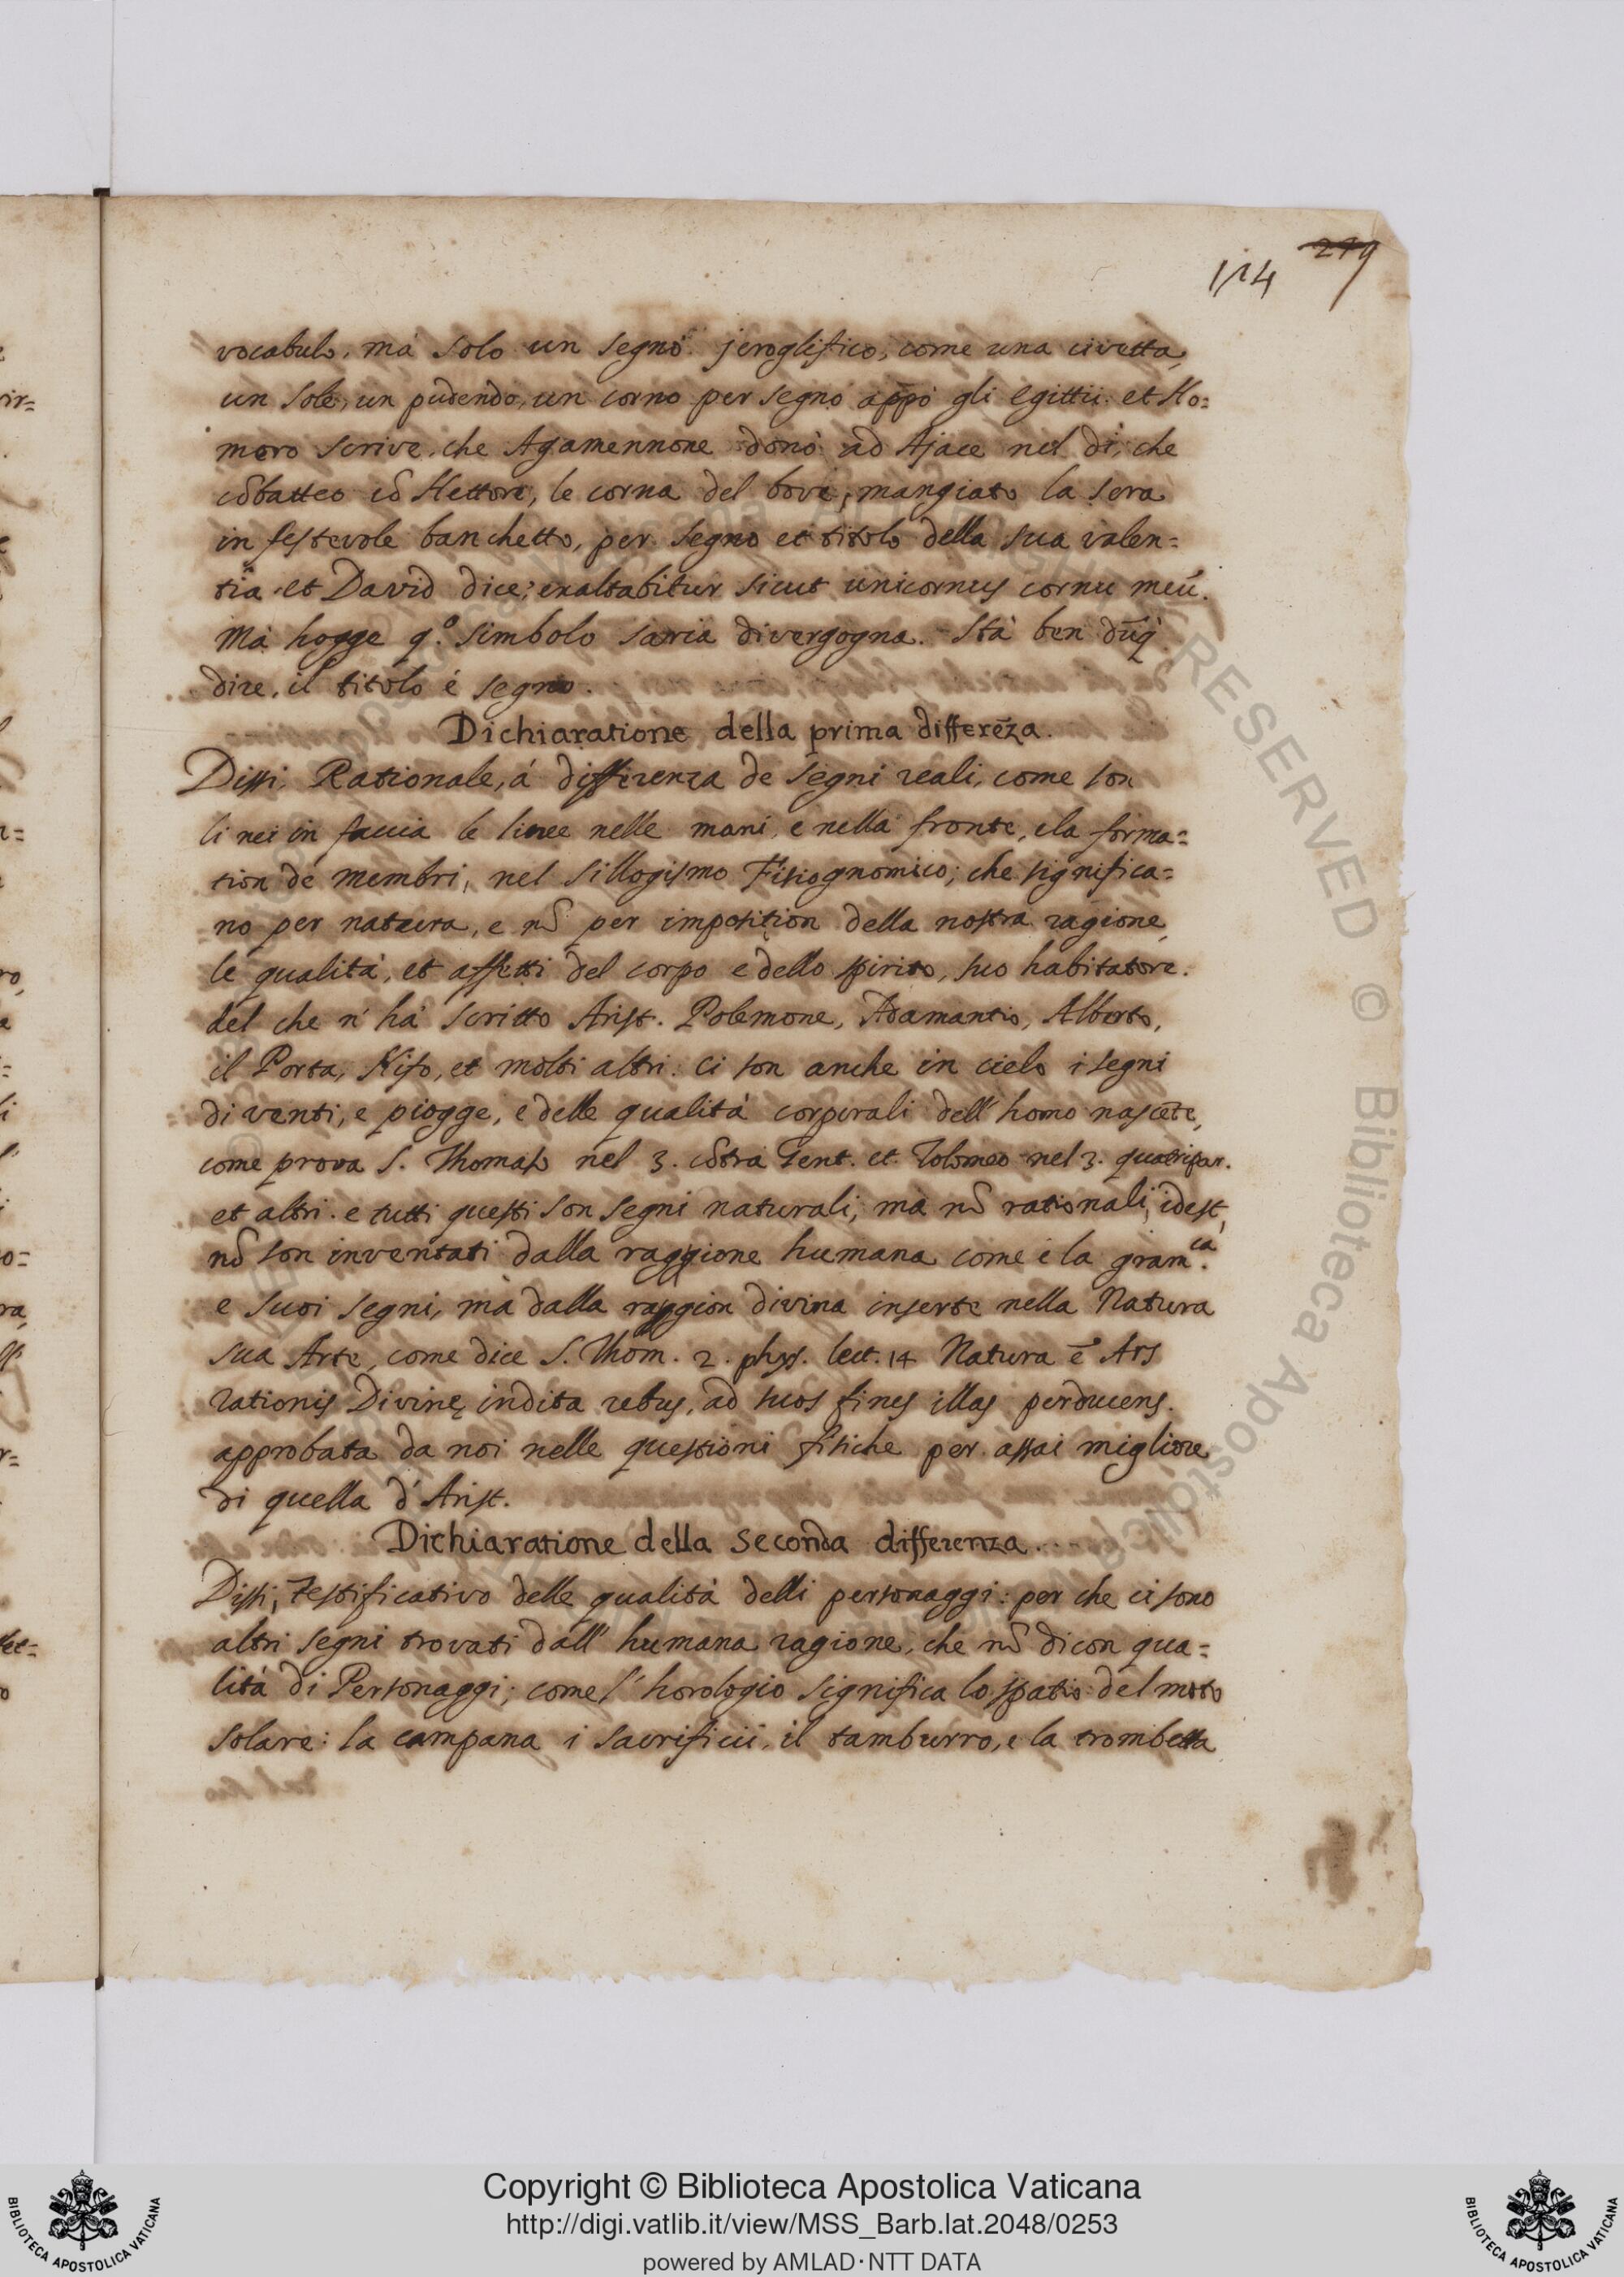 279
114
vocabulo, mà solo un segno jeroglifico, come una civetta,
un sole, un pudendo, un corno per segno app̄o gli Egittii. et Ho=
mero scrive, che Agamennone donò ad Ajace nel dì, che
cōbatteo cō Hettore, le corna del bove, mangiato la sera
in festevole banchetto, per segno et titolo della sua valen=
tia. et David dice; exaltabitur sicut unicornus cornu meū.
Mà hogge q.º simbolo saria di vergogna. Stà ben dūq̄
dire, il titolo è segno.
Dichiaratione della prima differēza.
Dissi, Rationale, à differenza de segni reali, come son
li nei in faccia le linee nelle mani, e nella fronte, e la forma=
tion dè membri, nel sillogismo Fisiognomico; che significa=
no per natura, e nō per imposition della nostra ragione,
le qualità, et affetti del corpo e dello spirito, suo habitatore.
del che n'hà scritto Arist. Polemone, Adamantio, Alberto,
il Porta, Nifo, et molti altri. Ci son anche in cielo i segni
di venti, e piogge, e delle qualità corporali dell'homo nascēte,
come prova S. Thomaso nel 3. cōtra Gent. et Tolomeo nel 3. quatripar.
et altri. e tutti questi son segni naturali, mà nō rationali, idest,
nō son inventati dalla raggione humana come è la gram.ca
e suoi segni, mà dalla raggion divina inserte nella Natura
sua Arte, come dice S. Thom. 2. phys. lect. 14 Natura ē Ars
rationis Divinę indita rebus, ad suos fines illas perducens.
approbata da noi nelle questioni fisiche per assai migliore
di quella d'Arist.
Dichiaratione della seconda differenza.
Dissi, Testificativo delle qualità delli personaggi: per che ci sono
altri segni trovati dall'humana ragione, che nō dicon qua=
lità di Personaggi; come l'horologio significa lo spatio del moto
solare: la campana i sacrificii, il tamburro, e la trombetta
Copyright © Biblioteca Apostolica Vaticana
http://digi.vatlib.it/view/MSS_Barb.lat.2048/0253
powered by AMLAD·NTT DATA
BIBLIOTECA APOSTOLICA VATICANA
BIBLIOTECA APOSTOLICA VATICANA